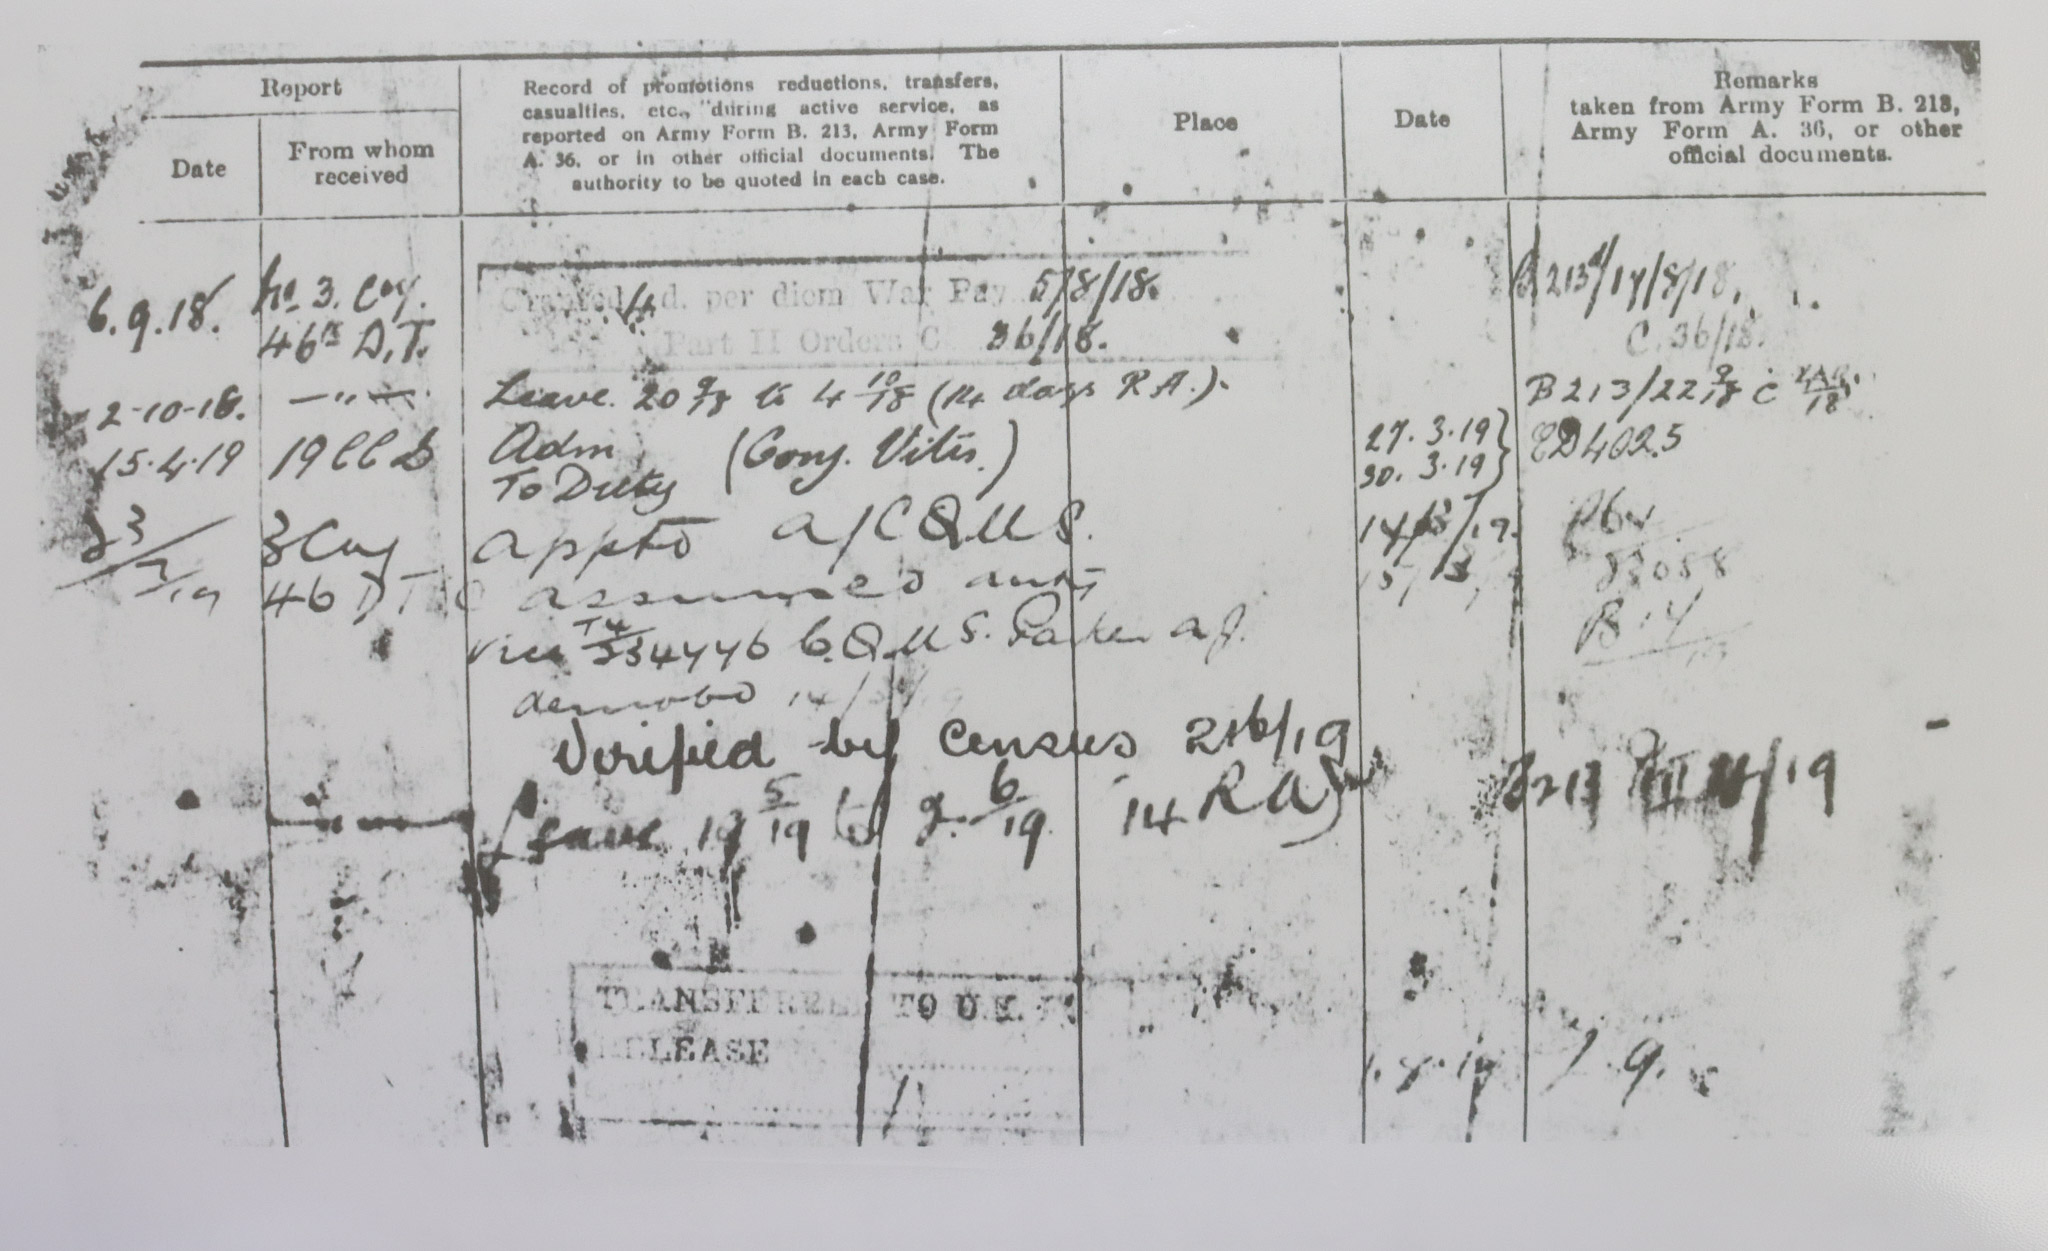 Report
Date
From whom
received
Record of promotions reductions, transfers,
casualties, etc., "during active service, as
reported on Army Form B. 213, Army Form
A. 36, or in other official documents. The
authority to be quoted in each case.
Place
Date
Remarks
taken from Army Form B. 213,
Army Form A. 36, or other
official documents.
6.9.18. No 3. Coy. Granted 4 d. per diem War Pay 5/8/18. B213/17/8/18.
46th D.T. Part II Orders C 36/18. C. 36/18.
2-10-18. —"— Leave 20 9/18 to 4 10/18 (14 days R.A.). B213/22 9/18 C
15.4.19 19 CCS Adm (Conj. Vitis.) 27.3.19 ED4025
To Duty 30.3.19
3 Coy appto a/CQMS. 14/3/19.
46 DT assumed duty
vice T4/334776 C.Q.M.S. Parker a J.
demobd 14/3/19
Verified by Census 21/6/19
Leave 19 5/19 to 2. 6/19 14 RA) B213
TRANSFERRED TO U.K.
RELEASE